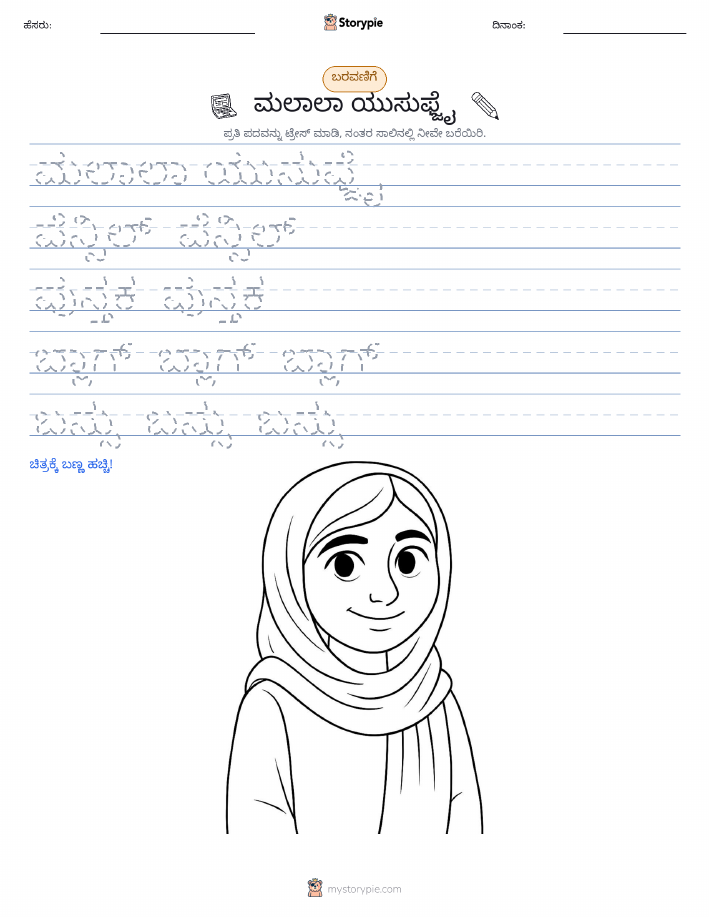 ಹೆಸರು:
Storypie
ದಿನಾಂಕ:
ಬರವಣಿಗೆ
ಮಲಾಲಾ ಯುಸುಫ್ಜೈ
ಪ್ರತಿ ಪದವನ್ನು ಟ್ರೇಸ್ ಮಾಡಿ, ನಂತರ ಸಾಲಿನಲ್ಲಿ ನೀವೇ ಬರೆಯಿರಿ.
ಮಲಾಲಾ ಯುಸುಫ್ಜೈ
ಪೆನ್ಸಿಲ್ ಪೆನ್ಸಿಲ್
ಪುಸ್ತಕ ಪುಸ್ತಕ
ಬ್ಲಾಗ್ ಬ್ಲಾಗ್ ಬ್ಲಾಗ್
ಬಸ್ಸು ಬಸ್ಸು ಬಸ್ಸು
ಚಿತ್ರಕ್ಕೆ ಬಣ್ಣ ಹಚ್ಚಿ!
mystorypie.com